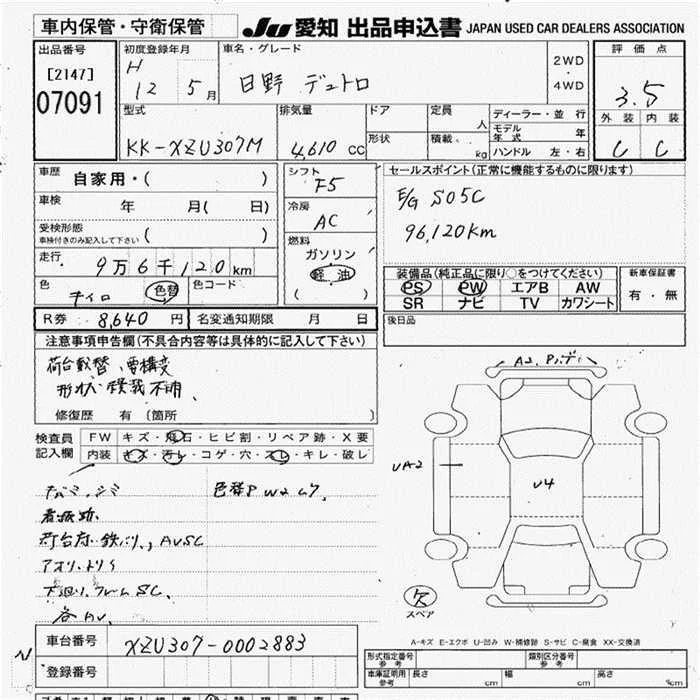 車内保管・守衛保管
Ju 愛知 出品申込書 JAPAN USED CAR DEALERS ASSOCIATION
出品番号
[2147]
07091
初度登録年月
H 12 5月
車名・グレード
日野 デュトロ
2WD
4WD
評価点
3.5
外装 内装
C C
型式
KK-XZU307M
排気量
4,610 cc
ドア
形状
定員 人
積載 kg
ディーラー・並行
モデル年式 年
ハンドル 左・右
車歴 自家用・( )
車検 年 月( 日)
受検形態
車検付きのみ記入して下さい ( )
走行 9万6千120km
色 色替
色コード
シフト F5
冷房 AC
燃料
ガソリン
軽油
( )
セールスポイント(正常に機能するものに限ります)
E/G S05C
96,120km
装備品(純正品に限り○をつけてください)
PS PW エアB AW
SR ナビ TV カワシート
新車保証書
有・無
後日品
R券 8,640円
名変通知期限 月 日
注意事項申告欄(不具合内容等は具体的に記入して下さい)
形状 積載不明
修復歴 有 (箇所 )
検査員記入欄
FW キズ・飛石・ヒビ割・リペア跡・X要
内装 キズ・汚レ・コゲ・穴・スレ・キレ・破レ
A2
UA2
U4
欠
スペア
A-キズ E-エクボ U-凹み W-補修跡 S-サビ C-腐食 XX-交換済
車台番号 XZU307-0002883
登録番号
形式指定番号 参考
類別区分番号 参考
車庫証明用 参考
長さ cm
幅 cm
高さ cm